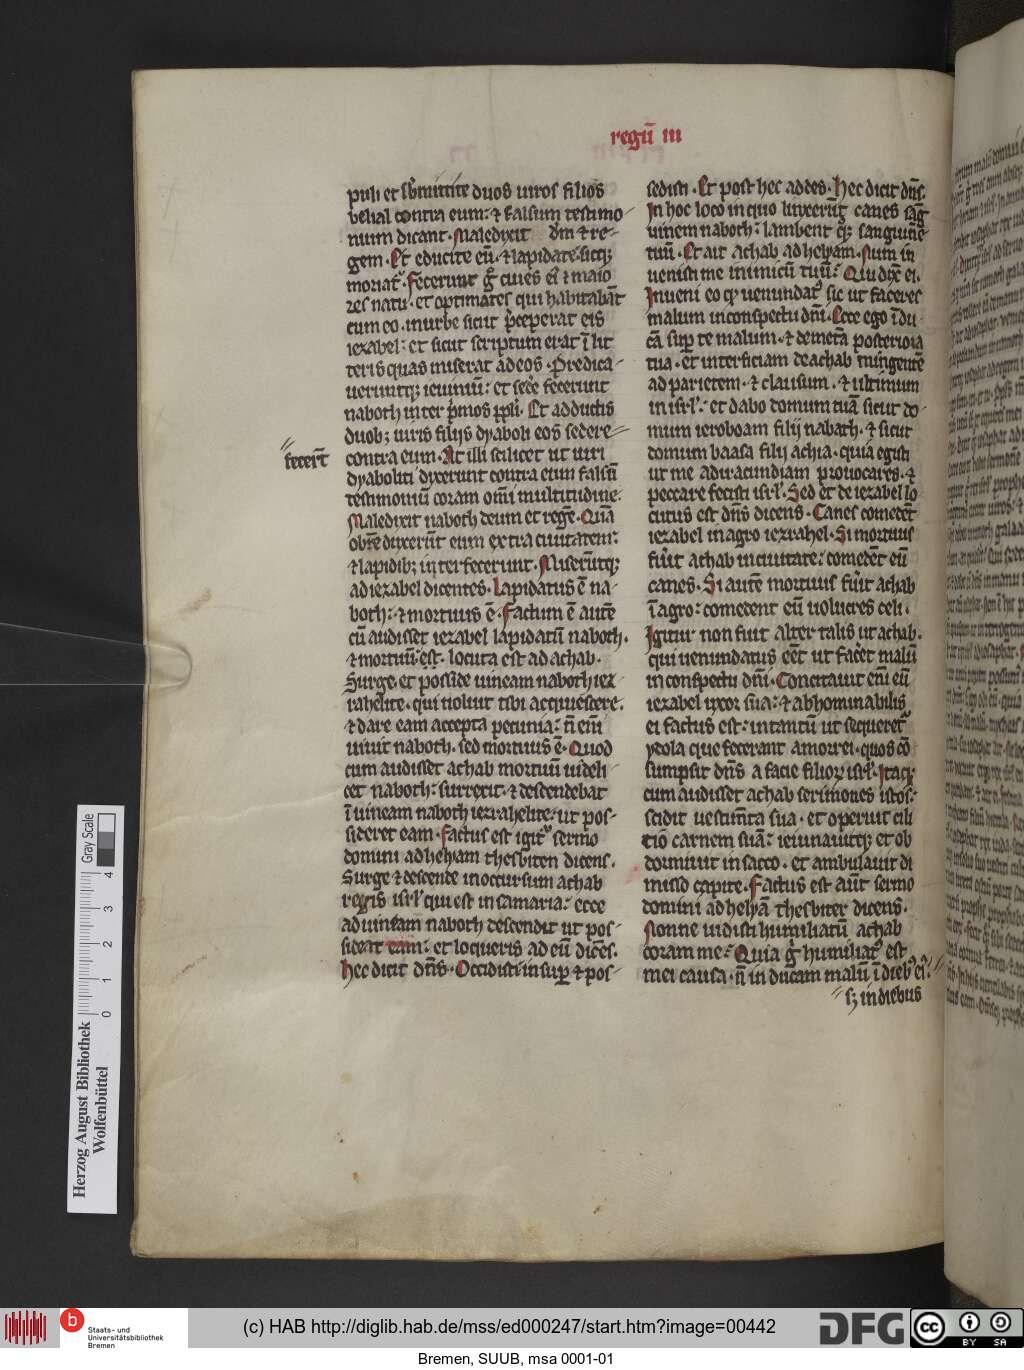 regū III
puli et sb̄mittite duos uiros filios
belial contra eum: ⁊ falsum testimo
nium dicant. Maledixit dm̄ ⁊ re-
gem. Et educite eū. ⁊ lapidate. sicq;
moriat᷑. Fecerunt g̊ ciues ei᷒ ⁊ maio
res natu. et optimates qui habitabāt
cum eo. in urbe sicut p̄ceperat eis
iezabel: et sicut scriptum erat ī lit
teris quas miserat ad eos. Predica-
ueruntq; ieiuniū: et sede᷑ fecerunt
naboth inter p̄mos ppl̓i. Et adductis
duob; uiris filijs dyaboli eos sedere
fecerūt
contra eum. At illi scilicet ut uiri
dyabolici dixerunt contra eum falsū
testimoniū coram om̄i multitudine.
Maledixit naboth deum et regē. Quā
obrē dixerūt eum extra ciuitatem:
⁊ lapidib; interfecerunt. Miserūtq;
ad iezabel dicentes. Lapidatus ē na-
both: ⁊ mortuus ē. Factum ē autē
cū audisset iezabel lapidatū naboth.
⁊ mortuū est. locuta est ad achab.
Surge et posside uineam naboth iez
rahelite. qui noluit tibi acquiescere.
⁊ dare eam accepta pecunia: n̄ eni᷑
uiuit naboth. sed mortuus ē. Quod
cum audisset achab mortuū uideli-
cet naboth: surrexit. ⁊ descendebat
ī uineam naboth iezrahelite: ut pos-
sideret eam. Factus est igit᷑ sermo
domini ad helyam thesbiten dicens.
Surge ⁊ descende in occursum achab
regis isrl̓ qui est in samaria: ecce
ad uineam naboth descendit ut pos-
sideat eam: et loqueris ad eū dicēs.
Hec dicit dn̄s. Occidisti insup̱ ⁊ pos-
sedisti. Et post hec addes. Hec dicit dn̄s.
In hoc loco in quo linxerūt canes sāg
uinem naboth: lambent q; sanguinē
tuū. Et ait achab ad helyam. Num in
uenisti me inimicū tuū? Qui dix̄ ei.
Inueni eo qꝙ uenundat᷒ sis ut faceres
malum in conspectu dn̄i. Ecce ego īdu
cā sup̱ te malum. ⁊ demetā posteriora
tua. et interficiam de achab mingentē
ad parietem. ⁊ clausum. ⁊ ultimum
in isrl̓: et dabo domum tuā sicut do-
mum ieroboam filij nabath. ⁊ sicut
domum baasa filij achia. quia egisti
ut me ad iracundiam prouocares. ⁊
peccare fecisti isrl̓. Sed et de iezabel lo
cutus est dn̄s dicens. Canes comedēt
iezabel in agro iezrahel. Si mortuus
fu̓it achab in ciuitate: comedēt eū
canes. Si autē mortuus fu̓it achab
ī agro: comedent eū uolucres celi.
Igitur non fuit alter talis ut achab.
qui uenundatus eēt ut fac̓et malū
in conspectu dn̄i. Concitauit eni᷑ eū
iezabel uxor sua: ⁊ abhominabilis
ei factus est: in tantū ut sequeret᷑
ydola que fecerant amorrei. quos cō
sumpsit dn̄s a facie filior̷ isrl̓. Itaq;
cum audisset achab sermones istos:
scidit uestim̄ta sua. et operuit cili
tio carnem suā: ieiunauitq; et ob
dormiuit in sacco. et ambulauit di
misso capite. Factus est aūt sermo
domini ad helyā thesbiten dicens.
Nonne uidisti humiliatū achab
coram me? Quia g̊ humiliat᷒ est
mei causa. n̄ inducam malū ī dieb᷒ ei᷒.
s; in diebus
Herzog August Bibliothek
Wolfenbüttel
Gray Scale
0 1 2 3 4
b
Staats- und
Universitätsbibliothek
Bremen
(c) HAB http://diglib.hab.de/mss/ed000247/start.htm?image=00442
DFG
cc BY SA
Bremen, SUUB, msa 0001-01